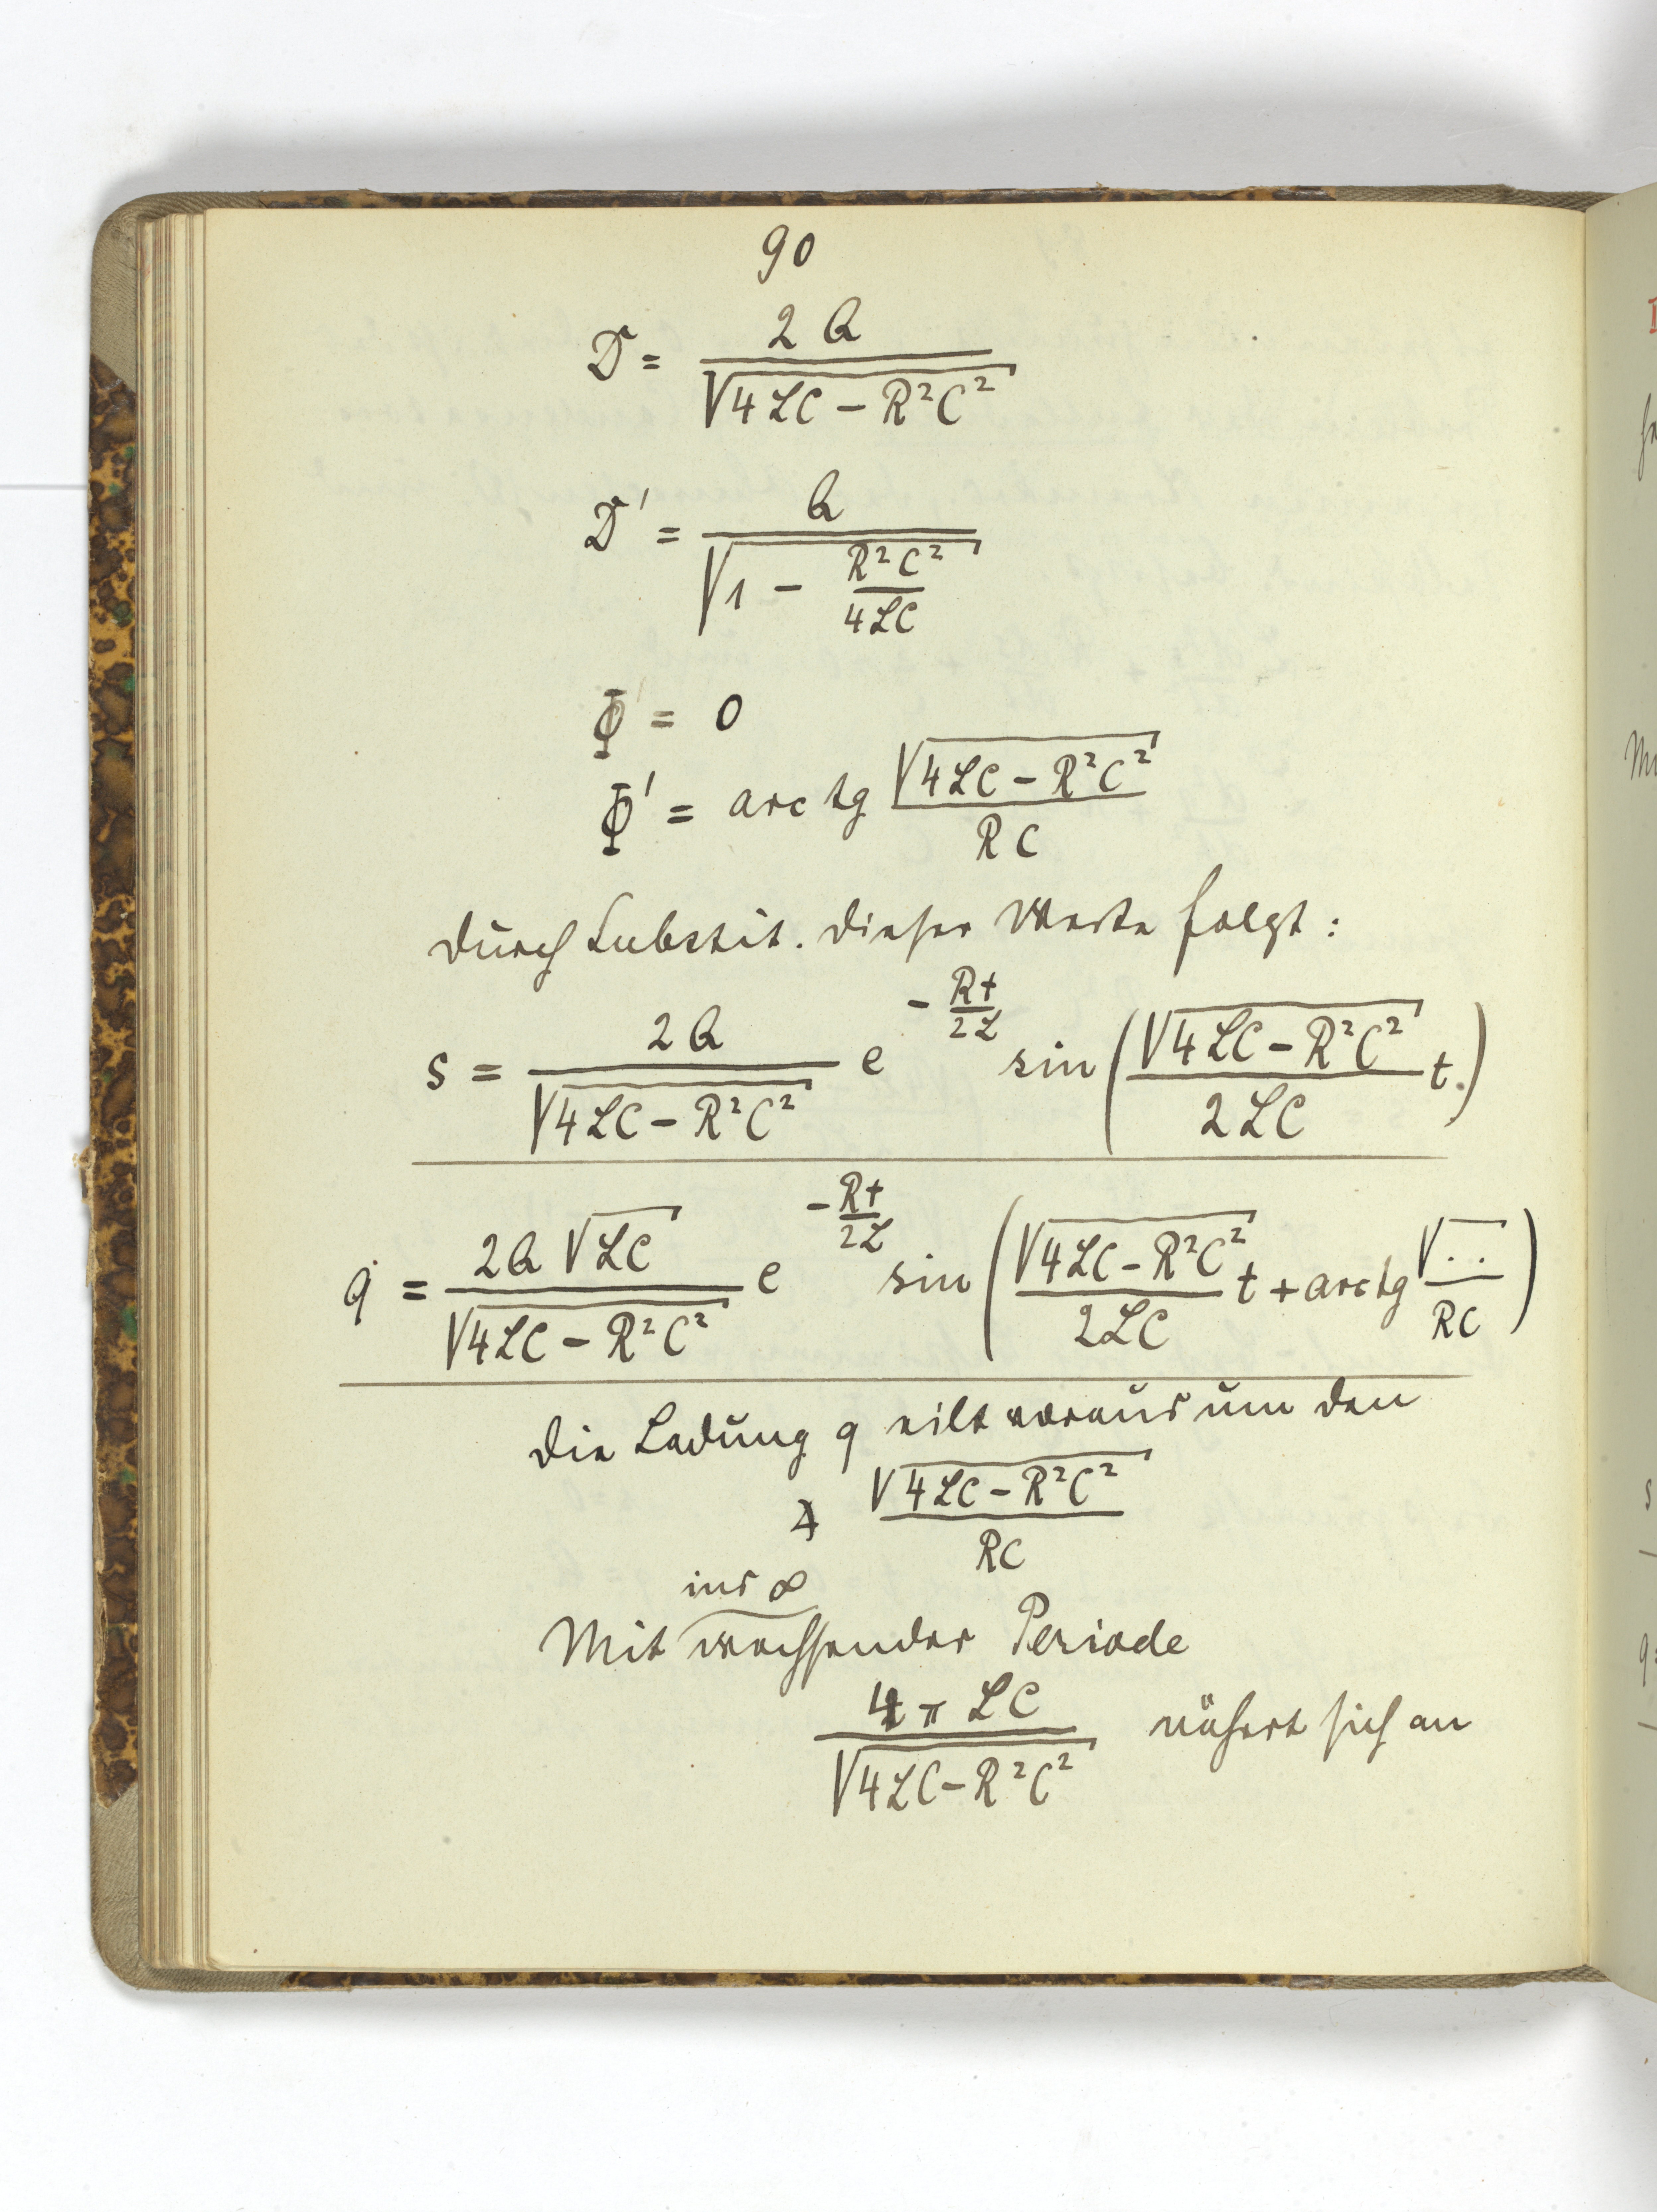 90
D = 2Q / √(4LC − R²C²)
D' = Q / √(1 − R²C² / 4LC)
Φ = 0
Φ' = arc tg √(4LC − R²C²) / RC
durch Substit. dieser Werte folgt:
s = 2Q / √(4LC − R²C²) e^(−Rt/2L) sin (√(4LC − R²C²) / 2LC t.)
q = 2Q √LC / √(4LC − R²C²) e^(−Rt/2L) sin (√(4LC − R²C²) / 2LC t + arc tg √.. / RC)
die Ladung q eilt voraus um den
∡ √(4LC − R²C²) / RC
ins ∞
Mit wachsender Periode
4π LC / √(4LC − R²C²) nähert sich an